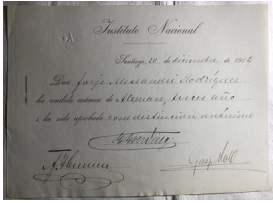 Instituto Nacional
Santiago, 20 de diciembre de 1912
Don Jorje Alessandri Rodríguez
ha rendido exámen de Aleman, tercer año
i ha sido aprobado con distincion unánime